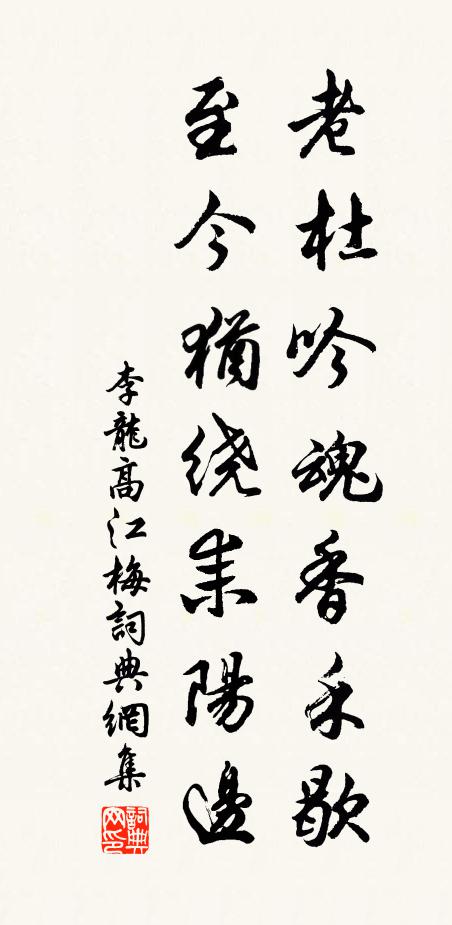 老杜吟魂香未歇
至今猶绕耒陽邊
李龍高江梅詞典網集
詞典网印